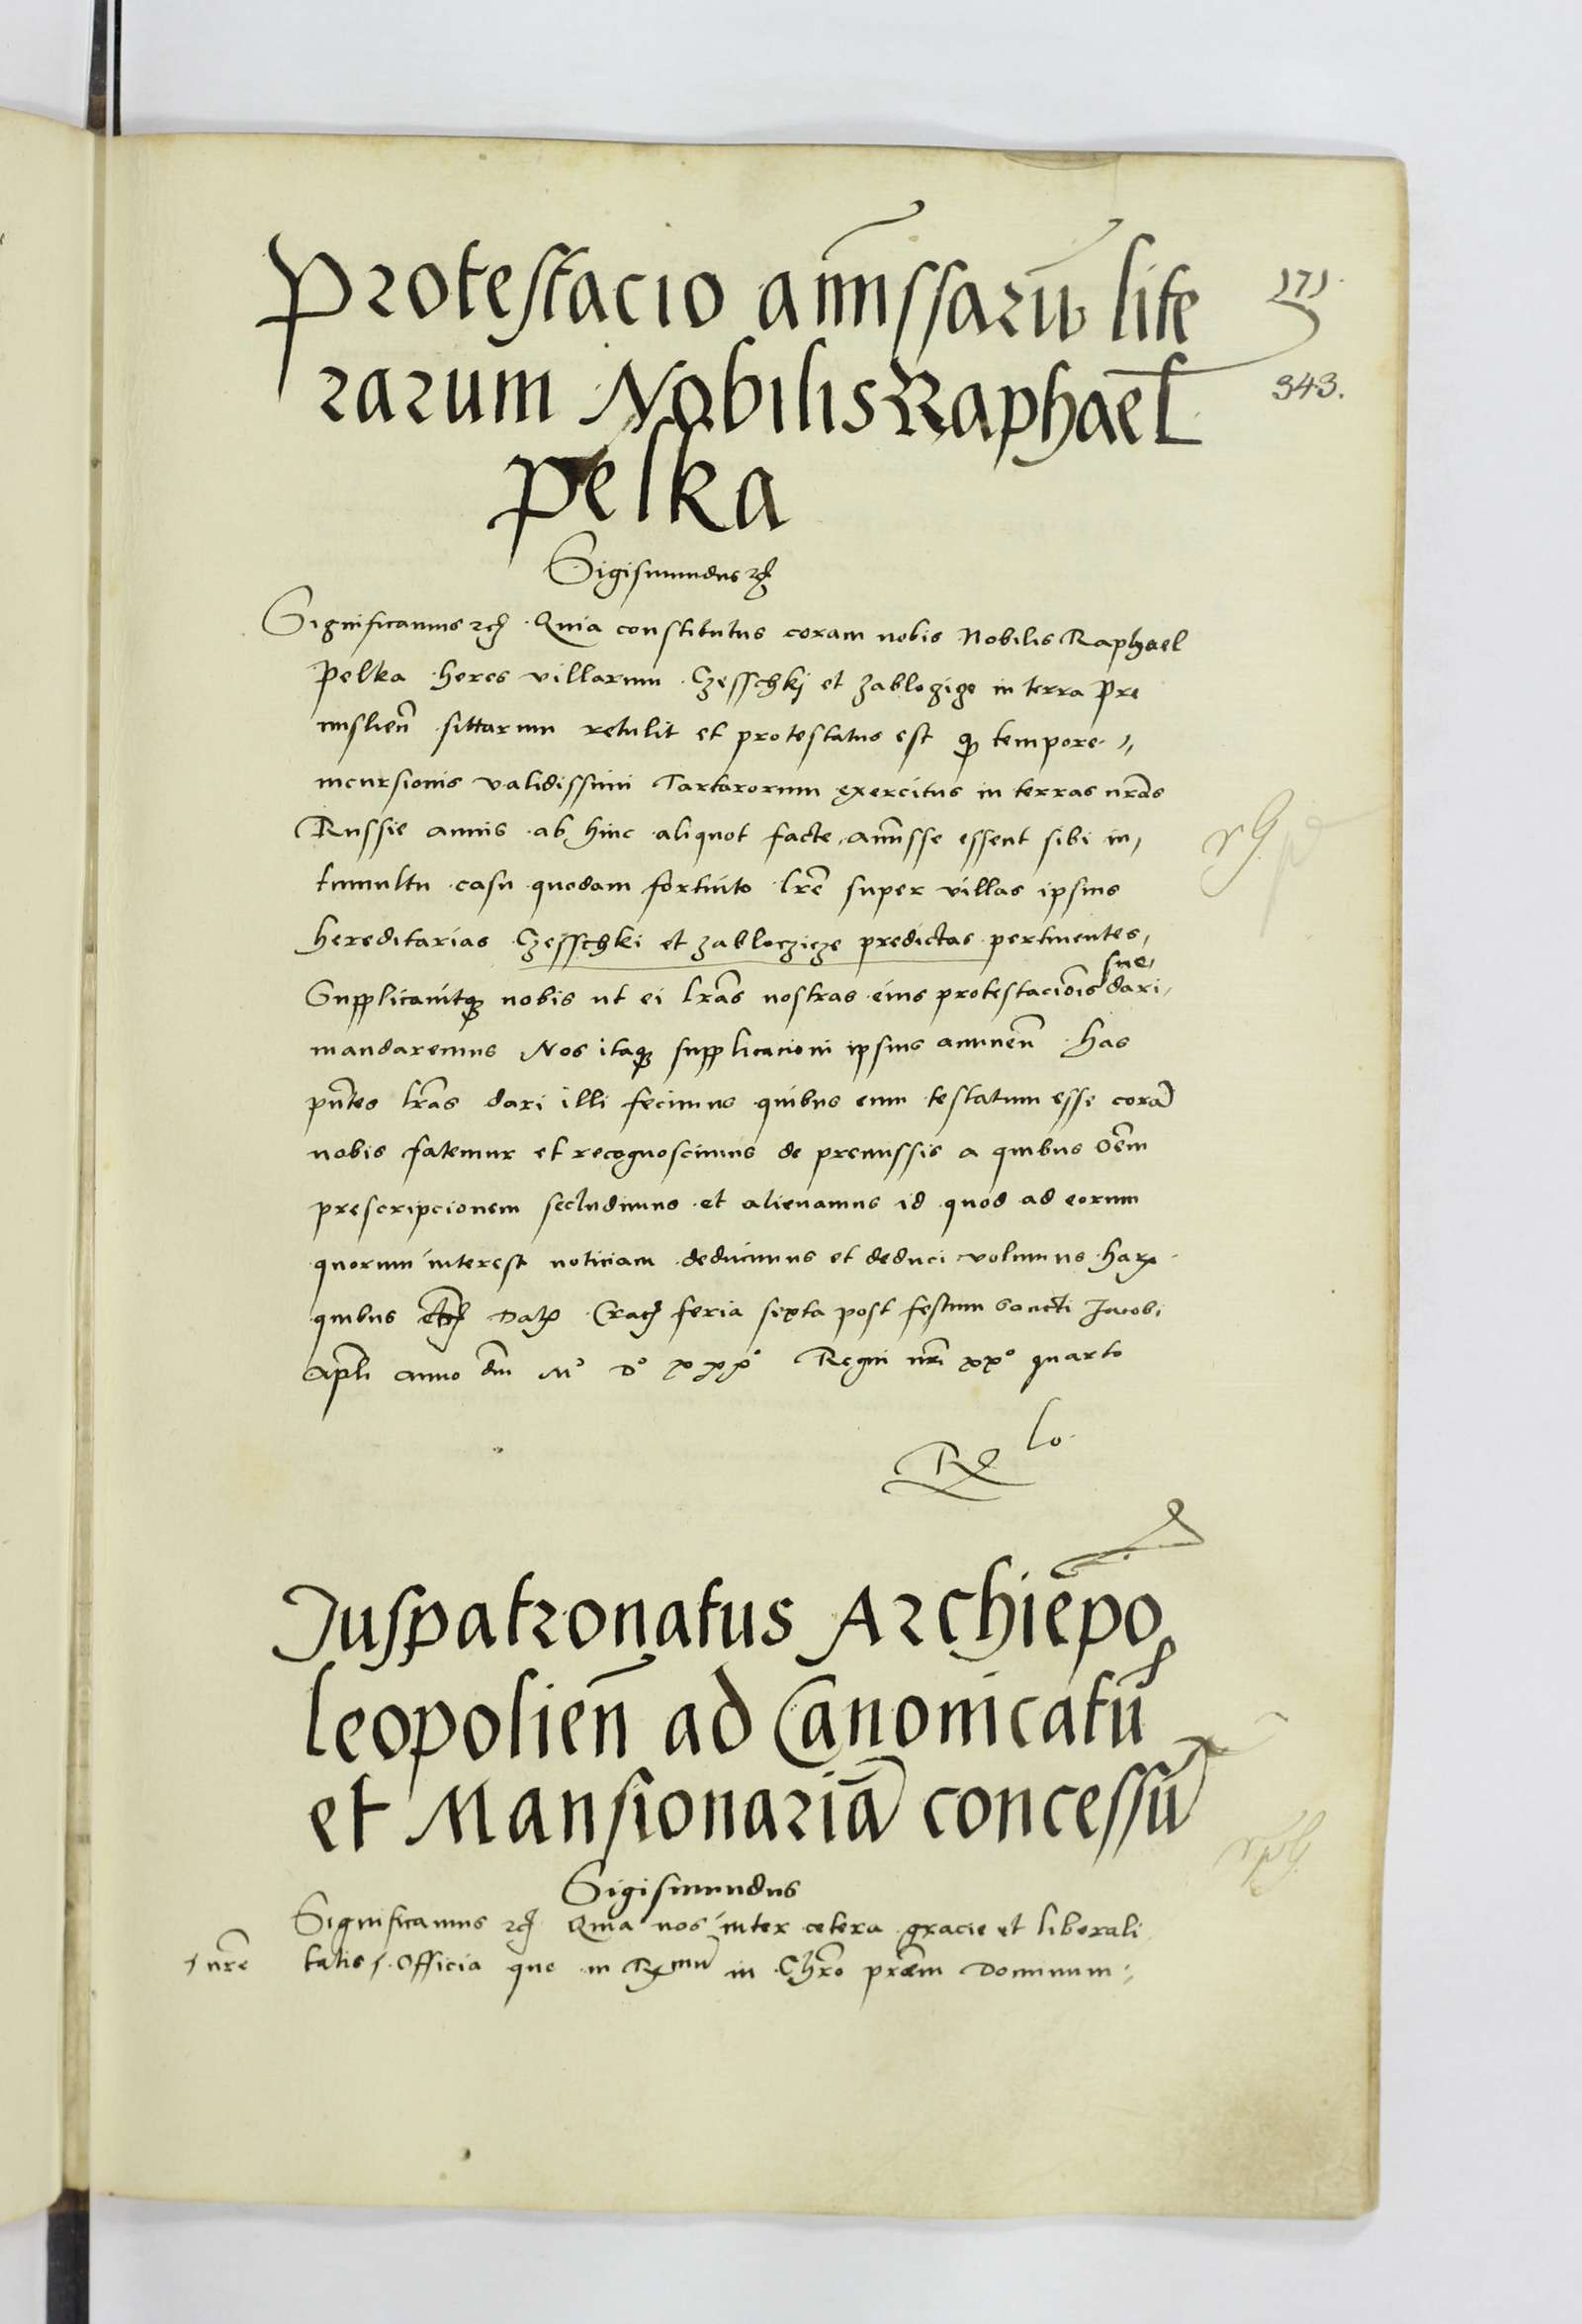 Protestacio amissarū lite
171.
rarum Nobilis Raphael
343.
Pelka
Sigismundus etc
Significamus etc. Quia constitutus coram nobis Nobilis Raphael
Pelka heres villarum Czesschkj et Zablozize in terra Pre
mislien̄ sittarum retulit et protestatus est qz tempore
incursionis validissimi Tartarorum exercitus in terras nr̄as
Russie annis ab hinc aliquot facte, amisse essent sibi in
tumultu casu quodam fortuito lr̄e super villas ipsius
hereditarias Czesschki et Zabloczicze predictas pertinentes,
Supplicavitqz nobis ut ei lr̄as nostras eius protestaciōis sue dari
mandaremus Nos itaqz supplicacioni ipsius annuen̄ has
pn̄tes lr̄as dari illi fecimus quibus eum testatum esse corā
nobis fatemur et recognoscimus de premissis a quibus oēm
prescripcionem secludimus et alienamus id quod ad eorum
quorum interest noticiam deducimus et deduci volumus har
quibus etc Dat Crac feria sexta post festum sancti Jacobi
Apl̄i anno dn̄i Mº Dº xxxº Regni nr̄i xxº quarto
Rº lo.
Juspatronatus Archiēpo
leopolien̄ ad Canonicatū
et Mansionariā concessū
Sigismundus
Significamus etc Quia nos inter cetera gracie et liberali
nr̄e tatis Officia que in Rmū in Chr̄o prēm Dominum